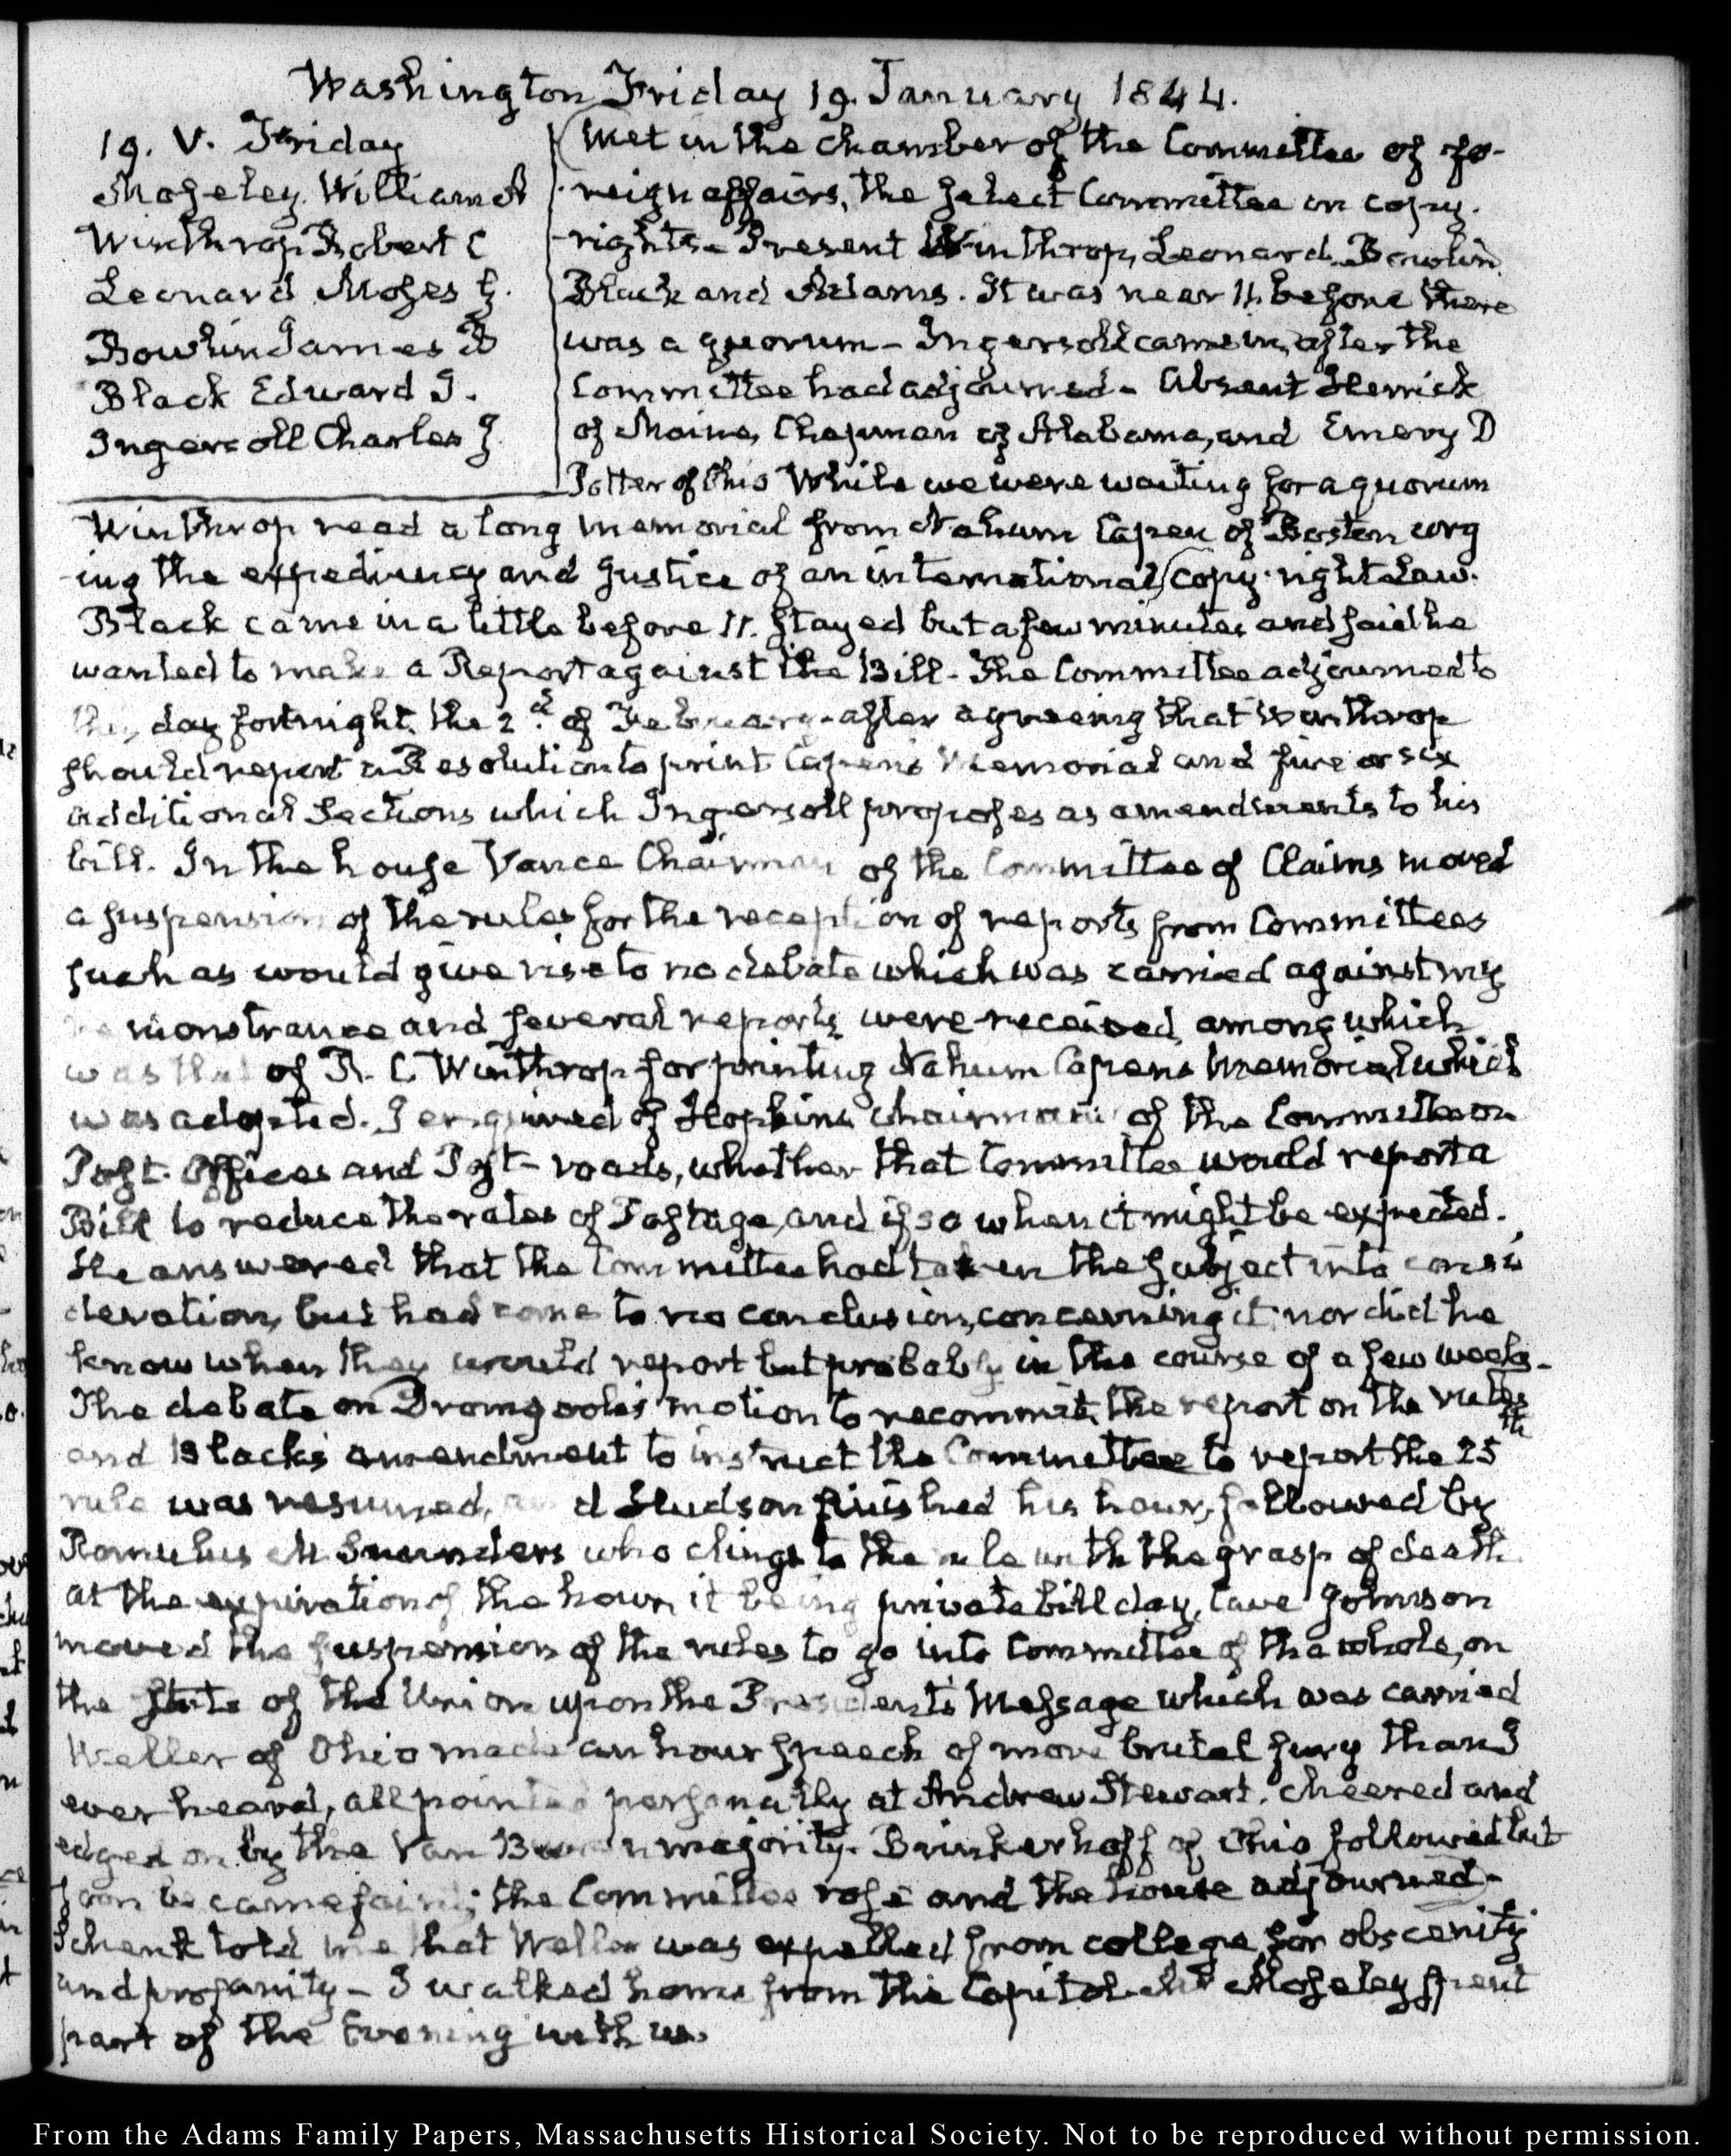 Washington Friday 19. January 1844.
19. V. Friday
Moseley William A
Winthrop Robert C
Leonard Moses G.
Bowlin James B
Black Edward J.
Ingersoll Charles J.
Met in the chamber of the Committee of fo-
reign affairs, the Select Committee on copy-
rights- Present Winthrop, Leonard, Bowlin
Black and Adams. It was near 11. before there
was a quorum- Ingersoll came in, after the
Committee had adjourned- Absent Herrick
of Maine, Chapman of Alabama, and Emery D
Potter of Ohio While we were waiting for a quorum
Winthrop read a long memorial from Nahum Capen of Boston urg
-ing the expediency and Justice of an international copy-right Law.
Black came in a little before 11. stayed but a few minutes and said he
wanted to make a Report against the Bill- The Committee adjourned to
this day fortnight, the 2d. of February- after agreeing that Winthrop
should report a Resolution to print Capen's Memorial and five or six
additional Sections which Ingersoll proposes as amendments to his
bill. In the house Vance Chairman of the Committee of Claims moved
a suspension of the rules for the reception of reports from Committees
such as would give rise to no debate which was carried against my
remonstrance and several reports were received, among which
was that of R. C. Winthrop for printing Nahum Capens Memorial which
was adopted. I enquired of Hopkins chairman of the Committee on
Post-Offices and Post-roads, whether that Committee would report a
Bill to reduce the rates of Postage, and if so when it might be expected.
He answered that the Committee had taken the subject into consi
deration, but had come to no conclusion, concerning it nor did he
know when they would report but probably in the course of a few weeks-
The debate on Dromgoole's motion to recommit the report on the rules
and Black's amendment to instruct the Committee to report the 25th
rule was resumed, and Hudson finished his hour, followed by
Romulus M Saunders who clings to the rule with the grasp of death
at the expiration of the hour, it being private bill day, Cave Johnson
moved the suspension of the rules to go into Committee of the whole, on
the state of the Union upon the President's Message which was carried
Weller of Ohio made an hour speech of more brutal fury than I
ever heard, all pointed personally at Andrew Stewart. cheered and
edged on by the Van Buren majority. Brinkerhoff of Ohio followed but
soon became faint; the Committee rose and the house adjourned-
Schenk told me that Weller was expelled from college for obscenity
and profanity- I walked home from the Capitol- Mr Moseley spent
part of the Evening with us.
From the Adams Family Papers, Massachusetts Historical Society. Not to be reproduced without permission.